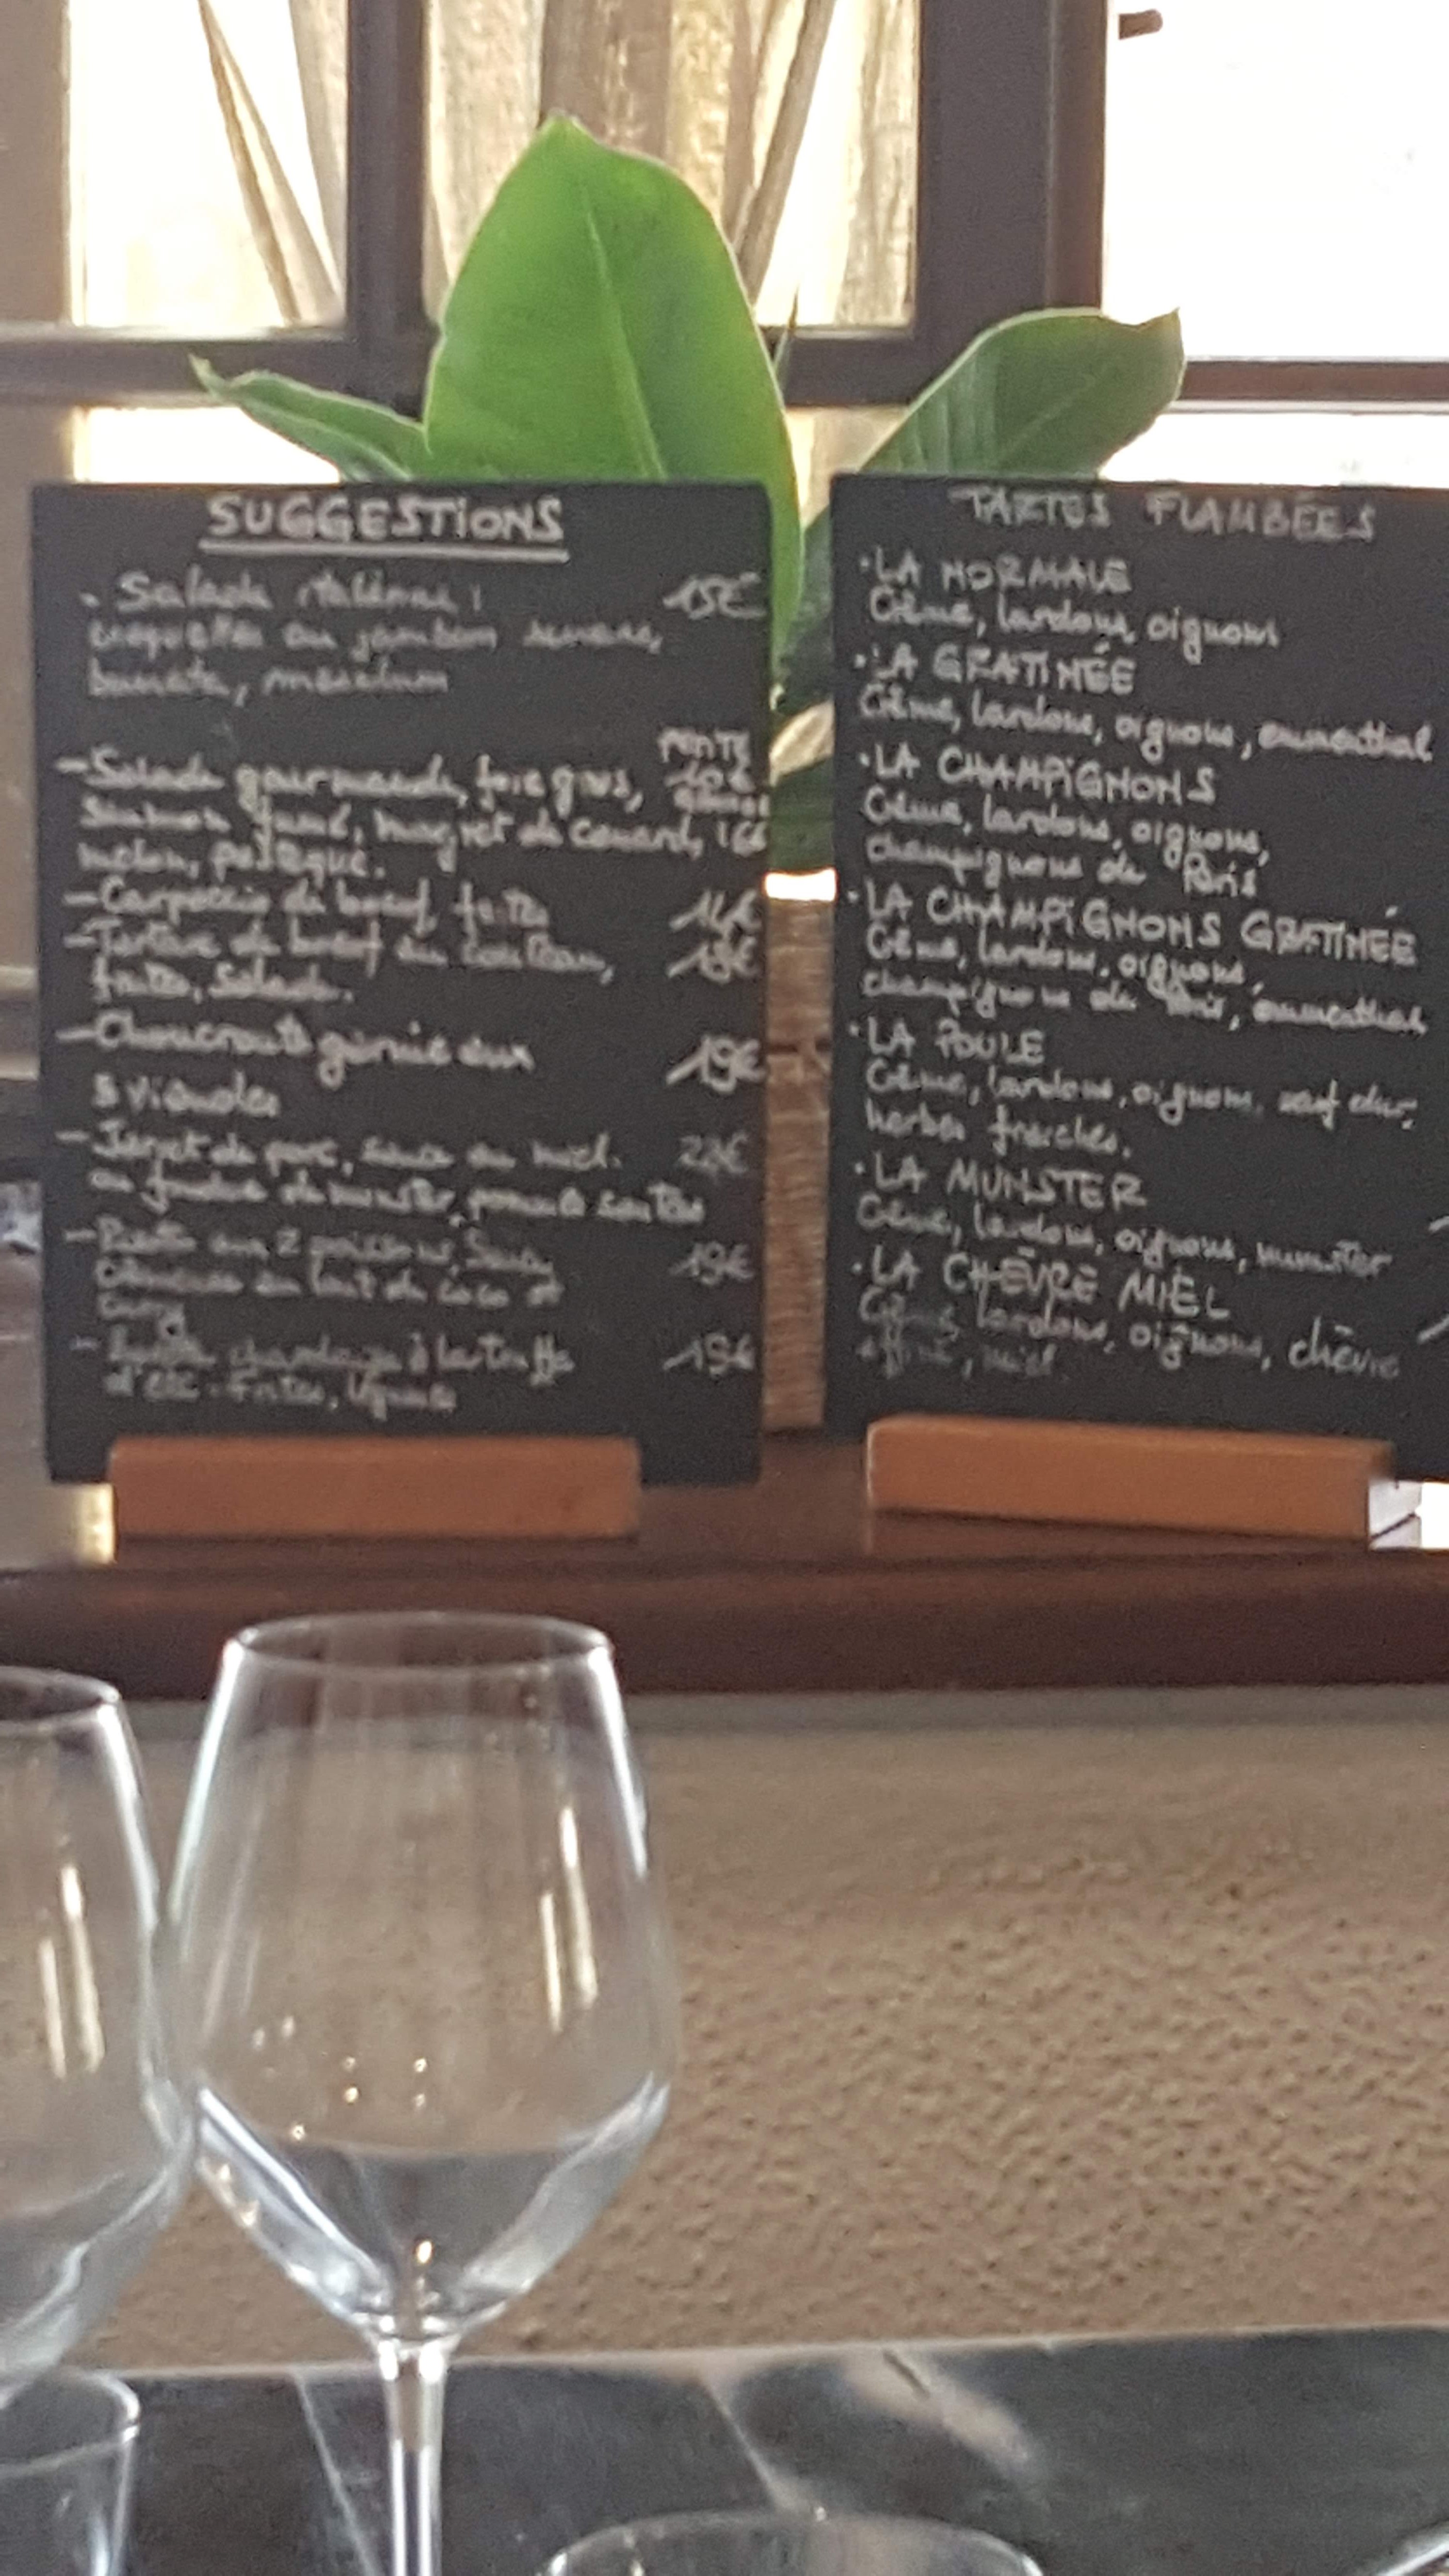 SUGGESTIONS
- Salade italienne : 15€
burrata, melon
PETITE
- Salade gourmande, foie gras, 10€
fumé, magret de canard, 16€
melon, pastèque.
- Carpaccio de boeuf, frites
- Tartare de boeuf au couteau,
frites, salade.
- Choucroute garnie aux 19€
5 viandes
- Jarret de porc, sauce au miel.
ou fondue de munster, pomme sautées
- aux 2 poissons, Sauce 19€
au lait de coco et
curry
à la truffe 19€
d'été. Frites, légumes
TARTES FLAMBÉES
• LA NORMALE
Crème, lardons, oignons
• LA GRATINÉE
Crème, lardons, oignons, emmenthal
• LA CHAMPiGNONS
Crème, lardons, oignons,
champignons de Paris
• LA CHAMPiGNONS GRATINÉE
Crème, lardons, oignons,
champignons de Paris, emmenthal
• LA POULE
Crème, lardons, oignons, oeuf dur,
herbes fraiches.
• LA MUNSTER
Crème, lardons, oignons, munster
• LA CHÈVRE MIEL
Crème, lardons, oignons, chèvre
affiné, miel